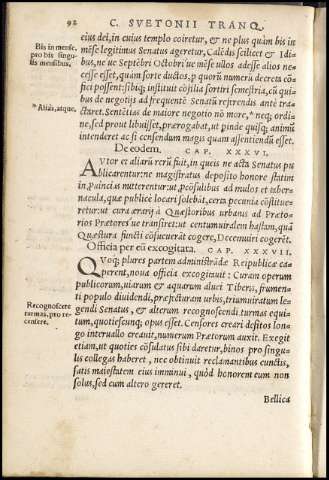 92 C. SVETONII TRANQ.
eius dei, in cuius templo coiretur, & ne plus quàm bis in
Bis in mense,
pro bis singu-
lis mensibus.
mēse legitimus Senatus ageretur, Calēdis scilicet & Idi-
bus, ne ue Septēbri Octobri'ue mēse ullos adesse alios ne-
cesse esset, quàm sorte ductos, p quorū numerū decreta cō-
fici possent: sibiq; instituit cōsilia sortiri semestria, cū qui-
bus de negotijs ad frequentē Senatū referendis antè tra-
* Aliàs, atque.
ctaret. Sentētias de maiore negotio nō more,* neq; ordi-
ne, sed prout libuisset, prærogabat, ut pinde quisq; animū
intenderet ac si censendum magis quàm assentiendū esset.
De eodem. CAP. XXXVI.
AVtor et aliarū rerū fuit, in queis ne acta Senatus pu
blicarentur: ne magistratus deposito honore statim
in Puincias mitterentur: ut pcōsulibus ad mulos et taber-
nacula, quæ publicè locari solebāt, certa pecunia cōstitue-
retur: ut cura ærarij à Quæstoribus urbanis ad Præto-
rios Prætores'ue transiret: ut centumuiralem hastam, quā
Quæstura functi cōsueuerāt cogere, Decemuiri cogerēt.
Officia per eū excogitata. CAP. XXXVII.
QVoq; plures partem administrādæ Reipublicæ ca-
perent, noua officia excogitauit: Curam operum
publicorum, uiarum & aquarum aluei Tiberis, frumen-
ti populo diuidendi, præfecturam urbis, triumuiratum le-
Recognoscere
turmas, pro re-
censere.
gendi Senatus, & alterum recognoscendi turmas equi-
tum, quotiescunq; opus esset. Censores creari desitos lon-
go interuallo creauit, numerum Prætorum auxit. Exegit
etiam, ut quoties cōsulatus sibi daretur, binos pro singu-
lis collegas haberet, nec obtinuit reclamantibus cunctis,
satis maiestatem eius imminui, quòd honorem eum non
solus, sed cum altero gereret.
Bellica